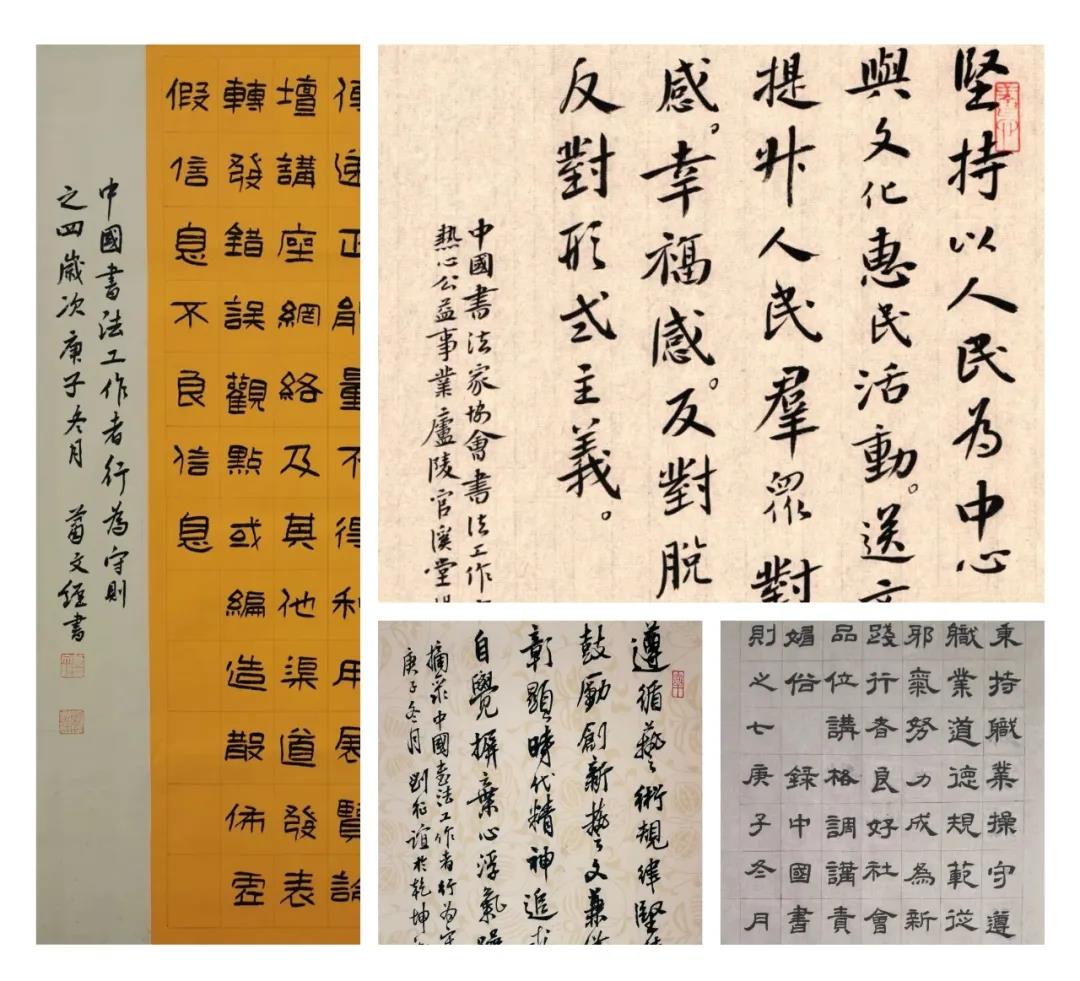 正能量不得利用展
壇講座網絡及其他渠道發表
轉發錯誤觀點或編造散佈虛
假信息不良信息
中國書法工作者行為守則
之四歲次庚子冬月 文經書
堅持以人民為中心
與文化惠民活動。送文
提升人民羣眾對
感。幸福感。反對脫
反對形式主義。
中國書法家協會書法工作
熱心公益事業廬陵官溪堂
遵循藝術規律堅
鼓勵創新藝文兼
彰顯時代精神追求
自覺摒棄心浮氣躁
摘录中國書法工作者行为守
庚子冬月 劉征誼於乾坤
秉持職業操守遵
職業道德規範從
邪氣努力成為新
踐行者良好社會
品位講格調講責
媚俗 錄中國書
則之七庚子冬月